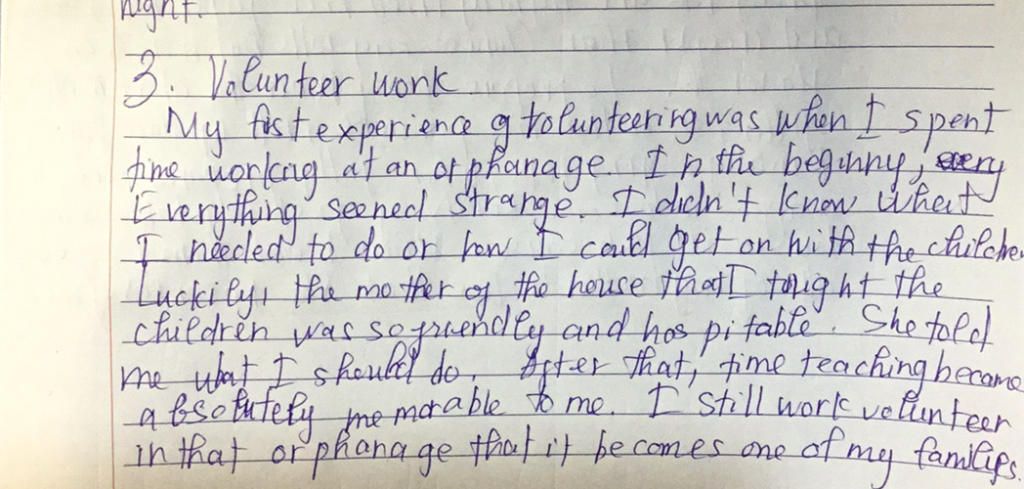 night.
3. Volunteer work
My fist experience of volunteering was when I spent
time working at an orphanage. In the beginny, every
Everything seened strange. I didn't know what
I needed to do or how I could get on with the childre
Luckily, the mother of the house that I tought the
children was so friendly and hospitable. She told
me what I should do. After that, time teaching became
absolutely memorable to me. I still work volunteer
in that orphanage that it becomes one of my families.